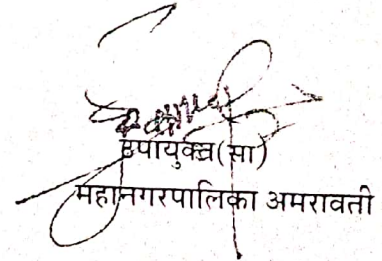 उपायुक्त(सा)
महानगरपालिका अमरावती